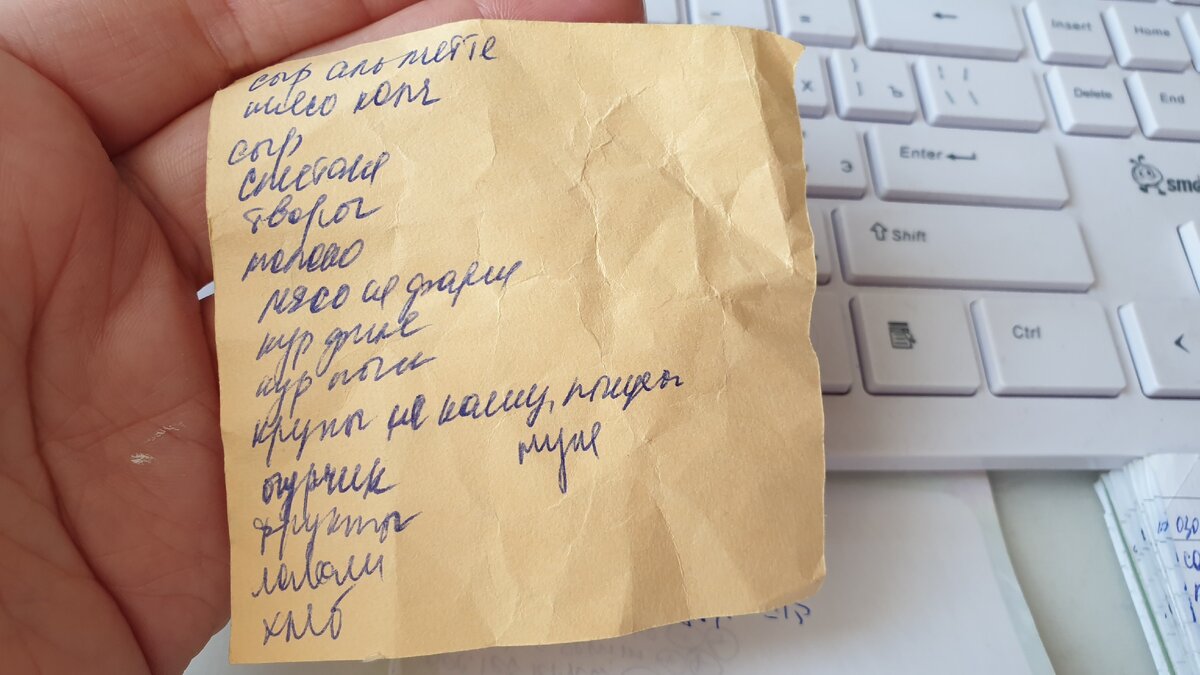 сыр альметте
мясо копч
сыр
сметана
творог
молоко
мясо на фарш
кур филе
кур
крупы на кашу,
мука
огурчик
фрукты
лаваш
хлеб
Insert
Home
Delete
End
Enter
Shift
Ctrl
X
Ъ
Э